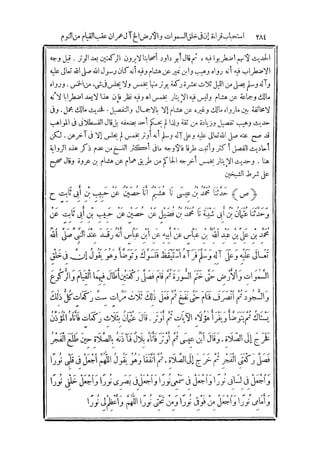 ٢٨٤ استحباب قراءة إن فى خلق السموات والارض الخ آل عمران عقب القيام من النوم
الحديث لأنهم اضطربوا فيه . ثم قال أبو داود أصحابنا لايرون الركعتين بعد الوتر . قيل وجه
الاضطراب فيه أنه رواه وهيب وابن نمير عن هشام وفيه أنه كان رسول الله صلى الله تعالى عليه
وآله وسلم يصلى من الليل ثلاث عشرة ركعة يوتر منها بخمس ولا يجلس فى شىء من الخمس . ورواه
مالك وجماعة عن هشام وليس فيه الايتار بخمس اه وفيه نظر فإن هذا لايعد اضطرابا لأنه
لامخالفة بين مارواه مالك وغيره عن هشام إلا بالاجمال والتفصيل . فحديث مالك مجمل . وفى
حديث وهيب تفصيل وزيادة من ثقة ولذا لم يحكم أحد بضعفه بل قال القسطلانى فى المواهب
قد صح عنه صلى الله تعالى عليه وعلى آله وسلم أنه أوتر بخمس لم يجلس إلا فى آخرهن . لكن
أحاديث الفصل أكثر وأثبت طرقا فالأوجه مافى أكثر النسخ من عدم ذكر هذه الرواية
هنا . وحديث الايتار بخمس أخرجه الحاكم من طريق همام عن هشام بن عروة وقال صحيح
على شرط الشيخين
﴿ ص ﴾ حَدَّثَنَا مُحَمَّدُ بْنُ عِيسَى نَا هُشَيْمٌ أَنَا حُصَيْنٌ عَنْ حَبِيبِ بْنِ أَبِي ثَابِتٍ ح
وَحَدَّثَنَا عُثْمَانُ بْنُ أَبِي شَيْبَةَ نَا مُحَمَّدُ بْنُ فُضَيْلٍ عَنْ حُصَيْنٍ عَنْ حَبِيبِ بْنِ أَبِي ثَابِتٍ عَنْ
مُحَمَّدِ بْنِ عَلِيِّ بْنِ عَبْدِ اللَّهِ بْنِ عَبَّاسٍ عَنْ أَبِيهِ عَنِ ابْنِ عَبَّاسٍ أَنَّهُ رَقَدَ عِنْدَ النَّبِيِّ صَلَّى اللَّهُ
تَعَالَى عَلَيْهِ وَعَلَى آلِهِ وَسَلَّمَ فَرَآهُ اسْتَيْقَظَ فَتَسَوَّكَ وَتَوَضَّأَ وَهُوَ يَقُولُ إِنَّ فِي خَلْقِ
السَّمَوَاتِ وَالْأَرْضِ حَتَّى خَتَمَ السُّورَةَ ثُمَّ قَامَ فَصَلَّى رَكْعَتَيْنِ أَطَالَ فِيهِمَا الْقِيَامَ وَالرُّكُوعَ
وَالسُّجُودَ ثُمَّ انْصَرَفَ فَنَامَ حَتَّى نَفَخَ ثُمَّ فَعَلَ ذَلِكَ ثَلَاثَ مَرَّاتٍ سِتَّ رَكَعَاتٍ كُلُّ ذَلِكَ
يَسْتَاكُ ثُمَّ يَتَوَضَّأُ وَيَقْرَأُ هَؤُلَاءِ الْآيَاتِ ثُمَّ أَوْتَرَ . قَالَ عُثْمَانُ بِثَلَاثِ رَكَعَاتٍ فَأَتَاهُ الْمُؤَذِّنُ
فَخَرَجَ إِلَى الصَّلَاةِ . وَقَالَ ابْنُ عِيسَى ثُمَّ أَوْتَرَ فَأَتَاهُ بِلَالٌ فَآذَنَهُ بِالصَّلَاةِ حِينَ طَلَعَ الْفَجْرُ
فَصَلَّى رَكْعَتَيِ الْفَجْرِ ثُمَّ خَرَجَ إِلَى الصَّلَاةِ . ثُمَّ اتَّفَقَا وَهُوَ يَقُولُ اللَّهُمَّ اجْعَلْ فِي قَلْبِي نُورًا
وَاجْعَلْ فِي لِسَانِي نُورًا وَاجْعَلْ فِي سَمْعِي نُورًا وَاجْعَلْ فِي بَصَرِي نُورًا وَاجْعَلْ خَلْفِي نُورًا
وَأَمَامِي نُورًا وَاجْعَلْ مِنْ فَوْقِي نُورًا وَمِنْ تَحْتِي نُورًا اللَّهُمَّ وَأَعْظِمْ لِي نُورًا